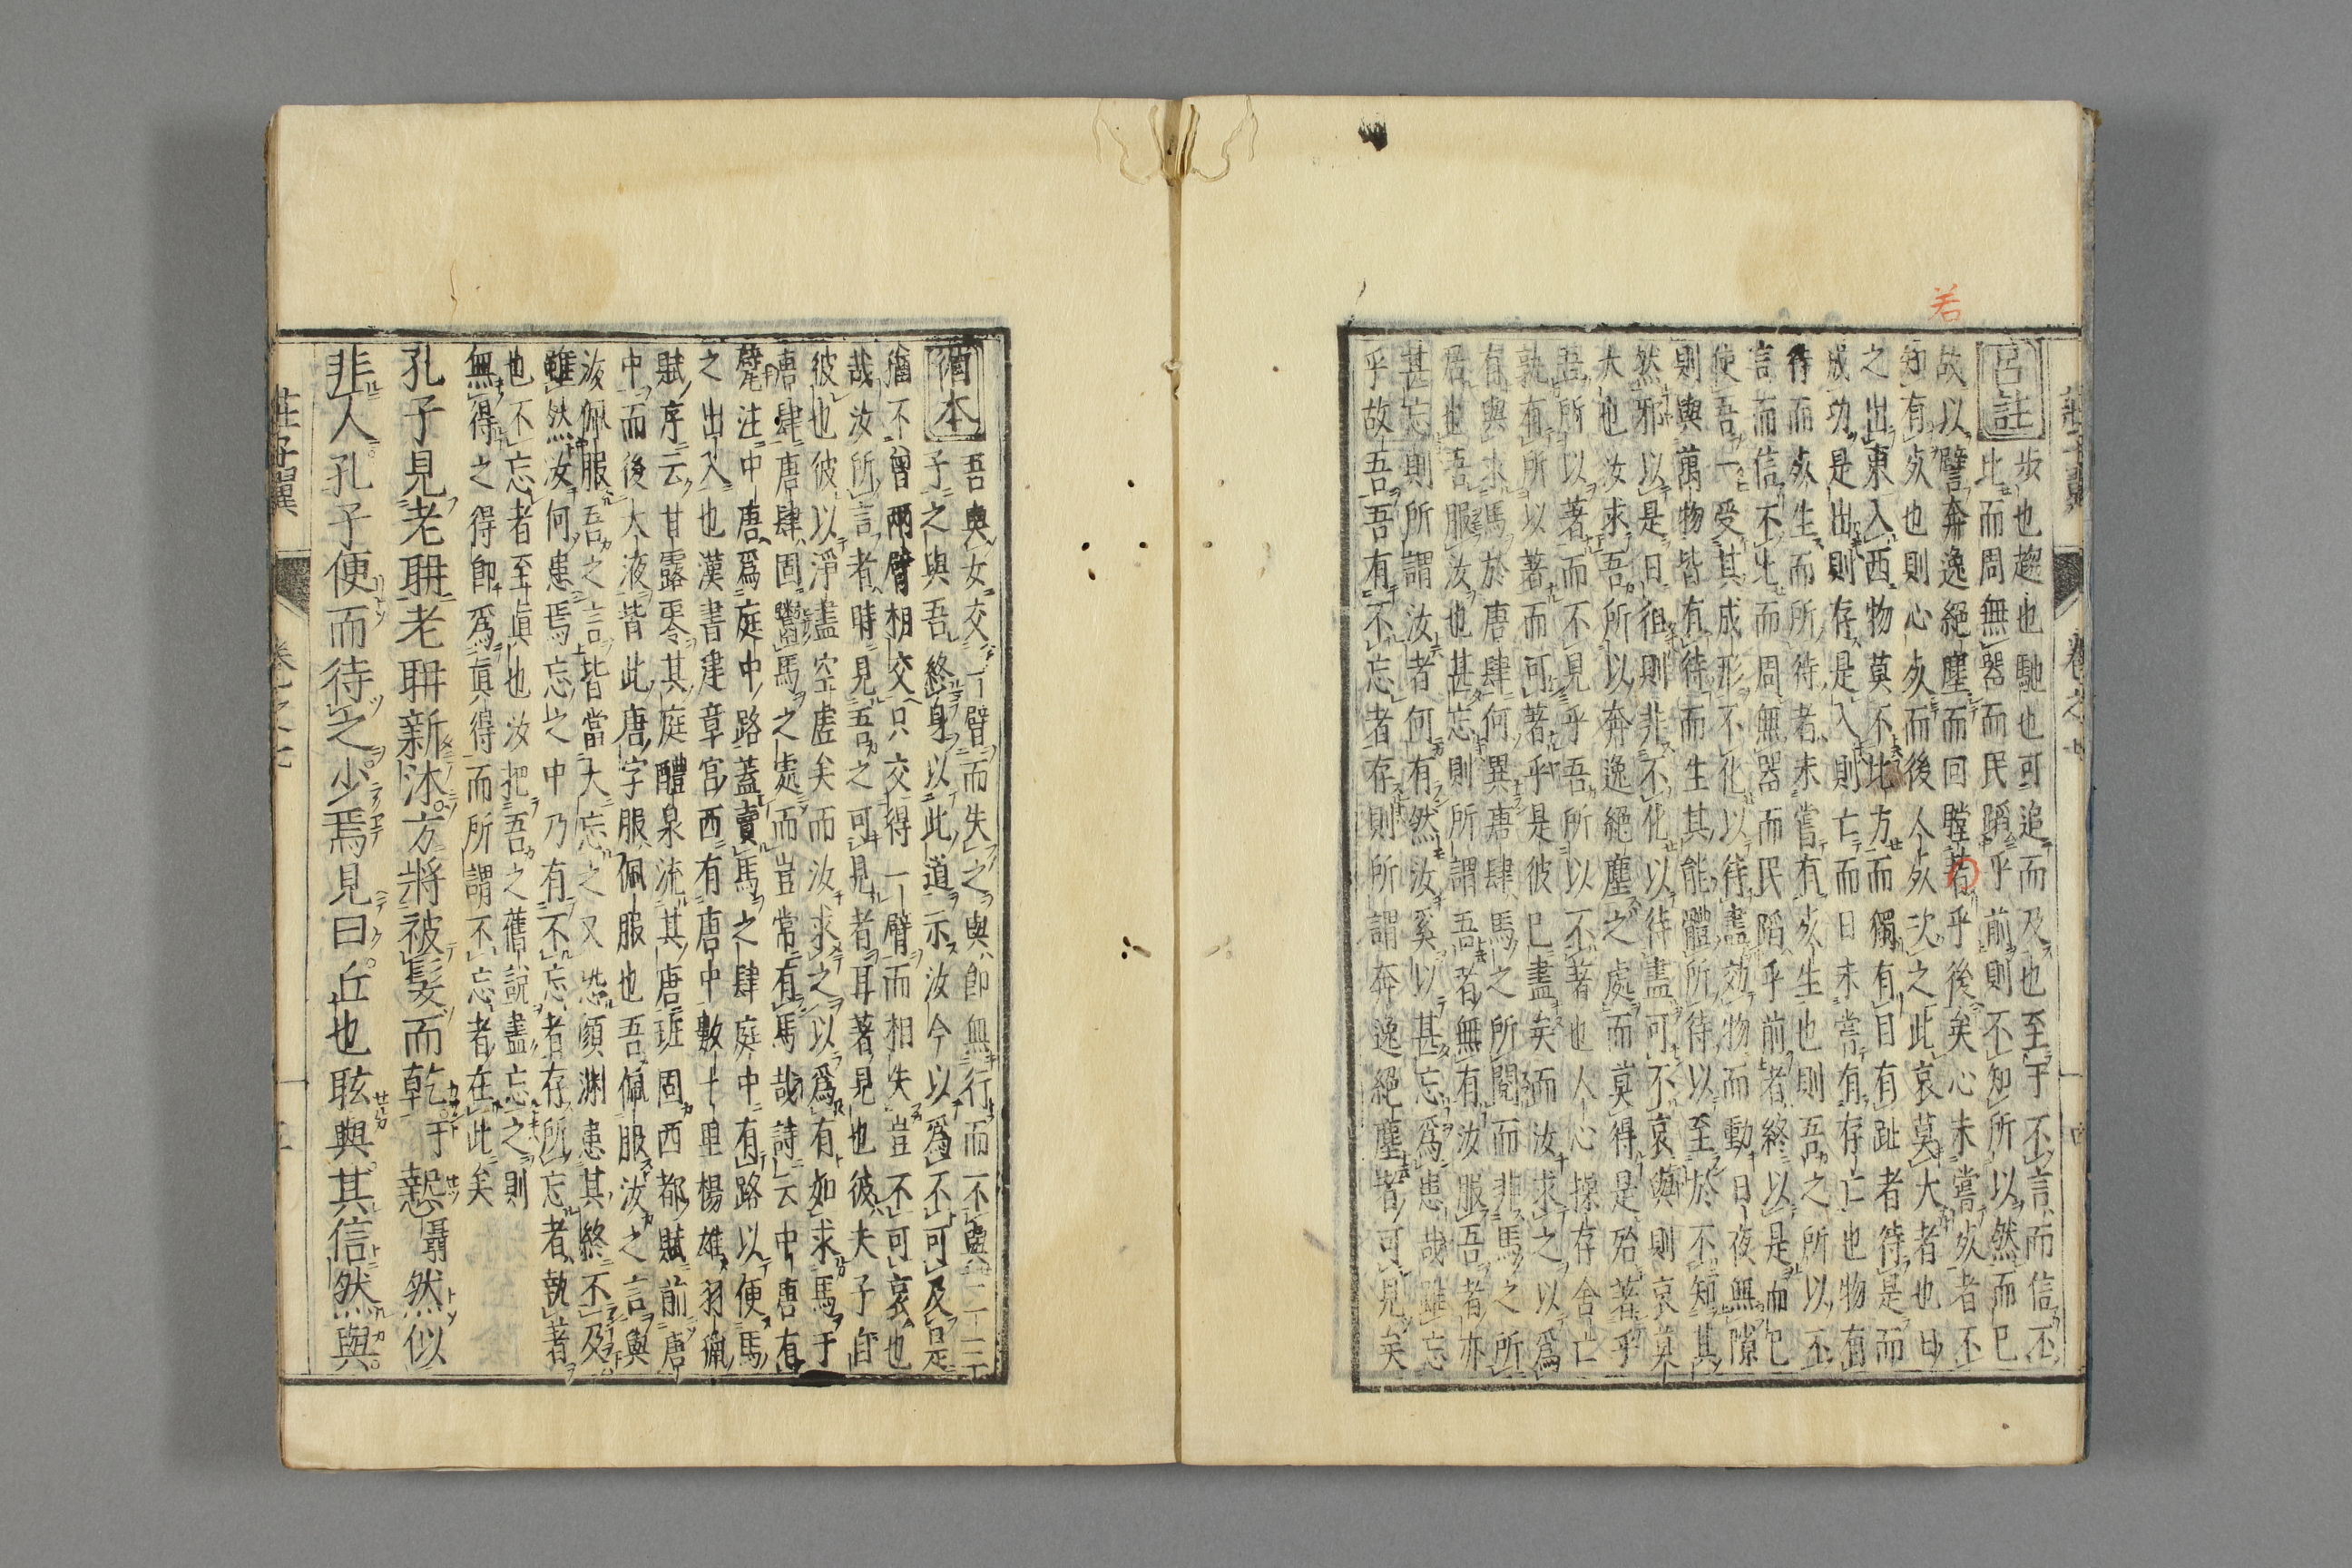 若
呂註
步也趨也馳也可追而及也至于不言而信不
比而周無器而民蹈乎前則不知所以然而已
故以譬奔逸絕塵而回瞠若乎後矣心未嘗死者不
知有死也則心死而後人死次之此哀莫大者也日
之出東入西物莫不比方而獨有目有趾者待是而
成功是出則存是入則亡而日未嘗有存亡也物有
待而死生而所待者未嘗有死生也則吾之所以不
言而信不比而周無器而民蹈乎前者終以是而已
使吾一受其成形不化以待盡効物而動日夜無隙
則與萬物皆有待而生其能體所待以至於不知其
然邪以是日徂則非不化以待盡可不哀與則哀莫
大也汝求吾所以奔逸絕塵之處而莫得是殆著乎
吾所以著而不見乎吾所以不著也人心操存舍亡
孰有所以著而可著乎是彼已盡矣而汝求之以爲
有與求馬於唐肆何異唐肆馬之所閱而非馬之所
居也吾服汝也甚忘則所謂吾者無有汝服吾者亦
甚忘則所謂汝者何有然汝奚以甚忘爲患哉雖忘
乎故吾吾有不忘者存則所謂奔逸絕塵者可見矣
莊子翼 卷之七
循本
吾與女交一臂而失之與即無行而不與二三
子之與吾終身以此道示汝今以爲不可及是
猶不曾兩臂相交只交得一臂而相失豈不可哀也
哉汝所言者時見吾之可見者耳著見也彼夫子自
彼也彼以淨盡空虛矣而汝求之以爲有如求馬于
唐肆唐肆固鬻馬之處而豈常有馬哉詩云中唐有
甓注中唐爲庭中路蓋賣馬之肆庭中有路以便馬
之出入也漢書建章宮西有唐中數十里楊雄羽獵
賦序云甘露零其庭醴泉流其唐班固西都賦前唐
中而後大液皆此唐字服佩服也吾佩服汝之言與
汝佩服吾之言皆當大忘之又恐顏淵患其終不及
雖然汝何患焉忘之中乃有不忘者存所忘者執著
也不忘者至眞也汝把吾之舊說盡忘之則
無得之得即爲眞得而所謂不忘者在此矣
孔子見老聃老聃新沐方將被髮而乾于慹慴然似
非人孔子便而待之少焉見曰丘也眩與其信然與
莊子翼 卷之七